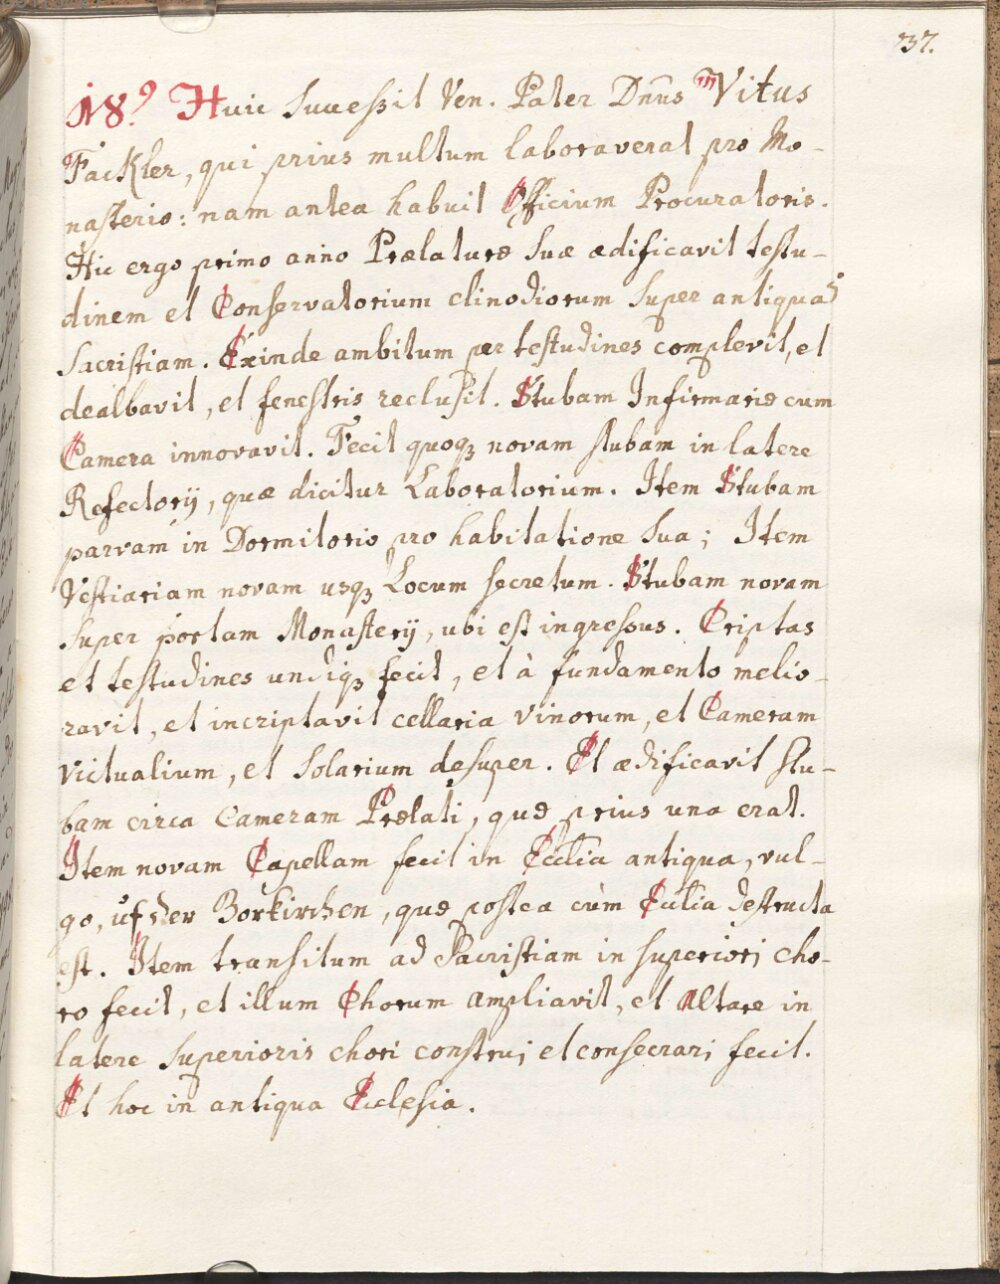 37.
18.º Huic Successit Ven. Pater Dñus Vitus
Fackler, qui prius multum laboraverat pro Mo-
nasterio: nam antea habuit Officium Procuratoris.
Hic ergo primo anno Prælaturę Suæ ædificavit testu-
dinem et Conservatorium clinodiorum super antiquã
Sacristiam. Exinde ambitum per testudines complevit, et
dealbavit, et fenestris reclusit. Stubam Infirmarię cum
Camera innovavit. Fecit quoqꝫ novam stubam in latere
Refectorij, quæ dicitur Laboratorium. Item Stubam
parvam in Dormitorio pro habitatione sua; Item
Vestiariam novam usqꝫ Locum secretum. Stubam novam
super portam Monasterij, ubi est ingressus. Criptas
et testudines undiqꝫ fecit, et à fundamento melio-
ravit, et incriptavit cellaria vinorum, et Cameram
victualium, et Solarium desuper. Et ædificavit stu-
bam circa Cameram Prælati, quę prius una erat.
Item novam Capellam fecit in Ecclia antiqua, vul-
go, uf der Borkirchen, quę postea cùm Ecclia destructa
est. Item transitum ad Sacristiam in superiori cho-
ro fecit, et illum Chorum ampliavit, et altare in
latere Superioris chori construi et consecrari fecit.
Et hoc in antiqua Ecclesia.